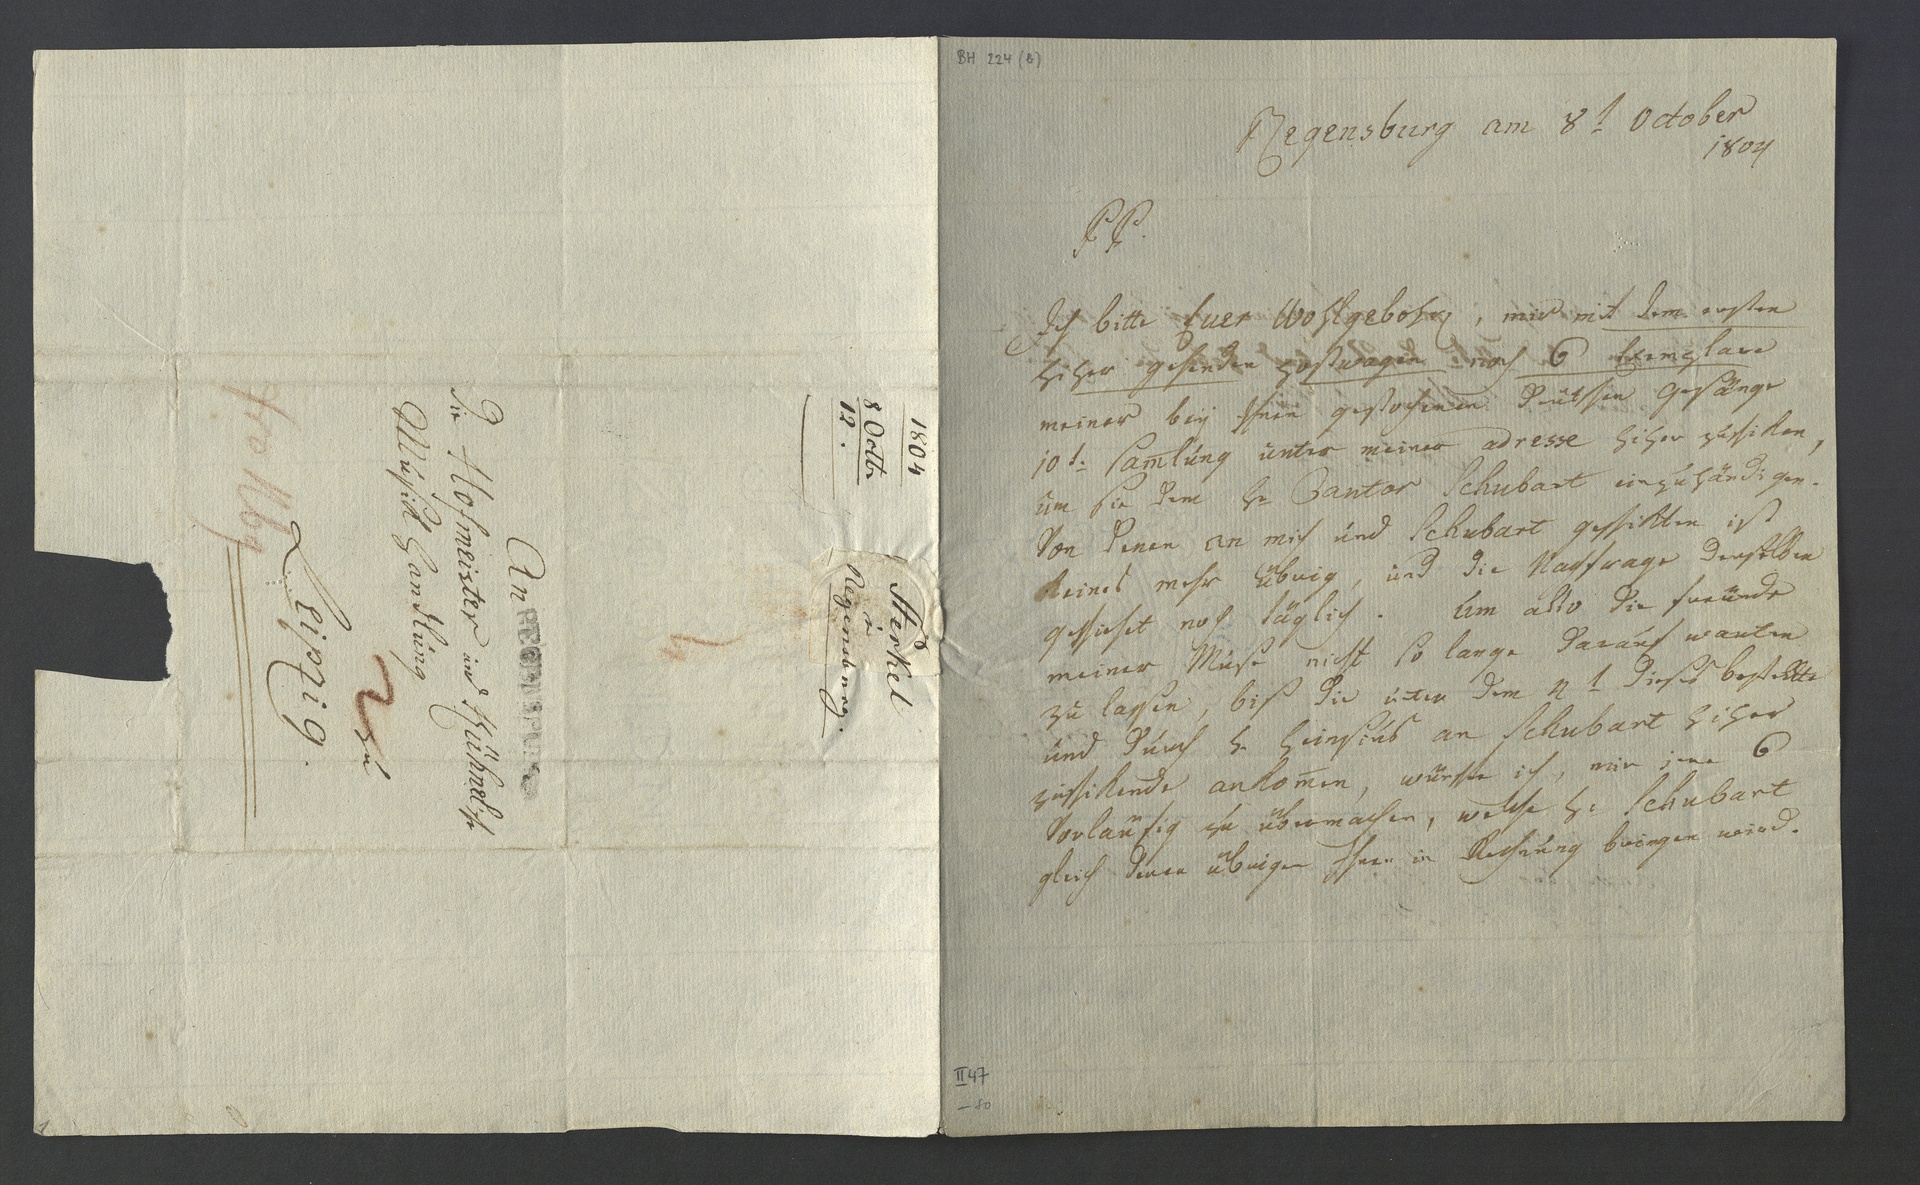 BH 224 (b)
Regensburg am 8t October
1804
P.P.
Ich bitte Euer Wohlgebohrn, mir mit dem ersten
hiher gehenden Postwagen noch 6 Exemplare
meiner beÿ Ihnen gestochenen deutschen Gesänge
10te Samlung unter meiner adresse hiher zuschiken,
um sie dem Hr Cantor Schubart einzuhändigen.
Von denen an mich und Schubart geschikten ist
keines mehr übrig, und die Nachfrage derselben
geschiehet noch täglich. Um also die freunde
meiner Muse nicht so lange darauf warten
zu lassen, biß die unter dem 2t dieses bestellte
und durch Hr Heinsius an Schubart hiher
zuschikende ankomen, wünschte ich, mir jene 6
Vorläufig zu übermachen, welche Hr Schubart
gleich denen übrigen Ihnen in Rechnung bringen wird.
II 47
1804
8 Octbr
12.
Sterkel
in
Regensburg.
An
REGENSPURG
Die Hofmeister und Kühnelsche
Musick Handlung
zu
Leipzig.